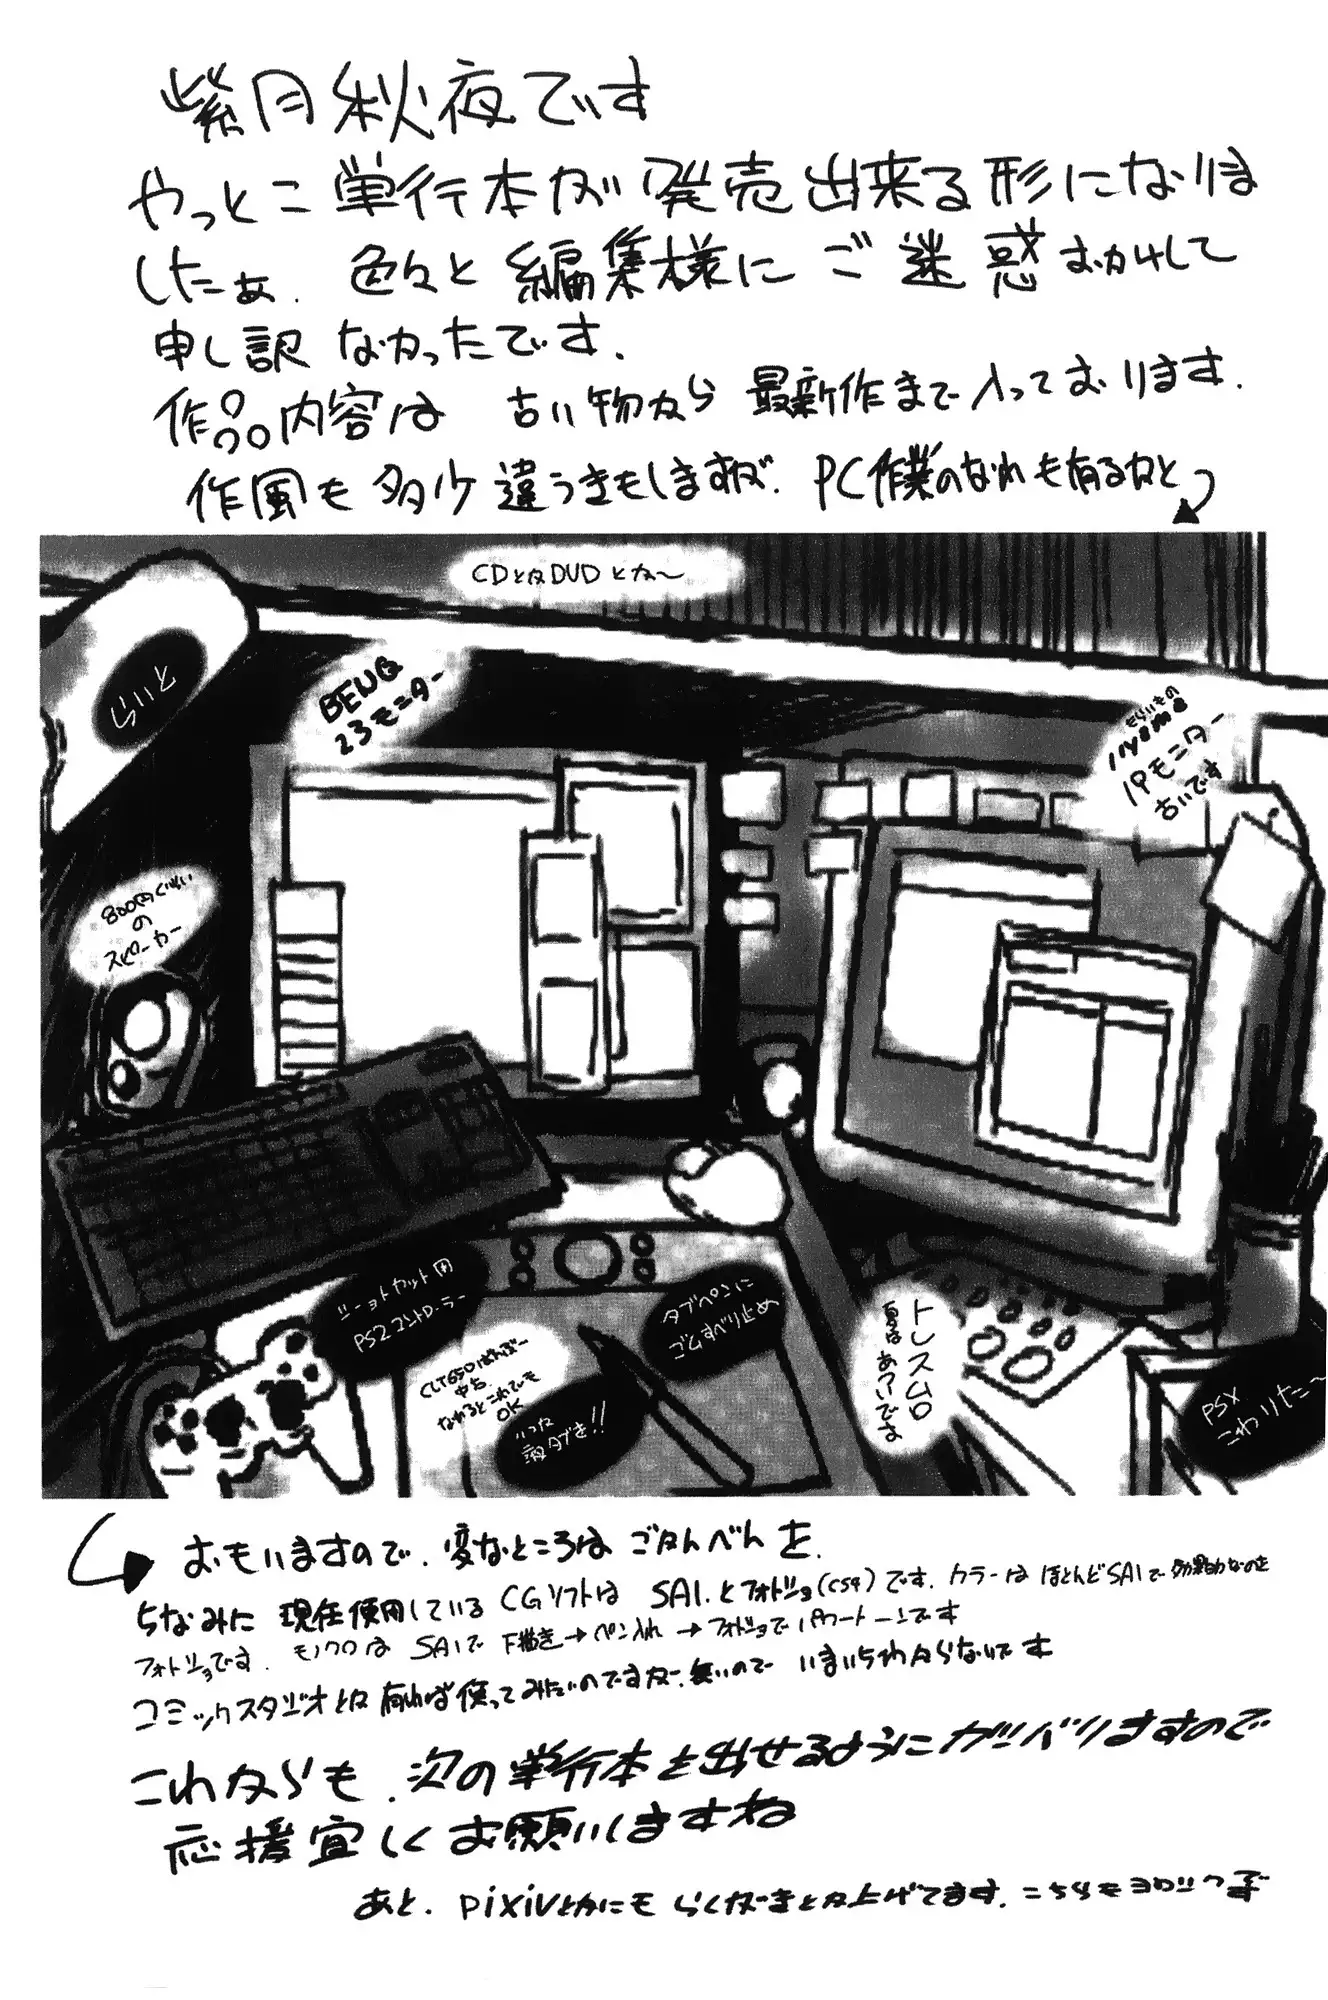 紫月秋夜です
やっとこ単行本が発売出来る形になりま
したぁ. 色々と編集様にご迷惑おかけして
申し訳なかったです.
作品内容は 古い物から最新作まで入っております.
作風も多少違うきもしますが. PC作業のなれも有るかと
CDとかDVDとか〜
らいと
BENQ
23モニター
もらいもの
iiyama
19モニター
古いです
800円ぐらい
の
スピーカー
ショートカット用
PS2コントローラー
タブペンに
ゴムすべり止め
中古.
なれるとこれでも
OK
いった
液タブを!!
トレスムロ
夏はあついです
PSX
こわりた〜
おもいますので. 変なところはごかんべんを.
ちなみに 現在使用しているCGソフトは SAI.とフォトショ(CS4)です. カラーは ほとんどSAIで 効果的なのを
フォトショです. モノクロは SAIで 下描き→ペン入れ→フォトショでパワートーンです
コミックスタジオとか有れば使ってみたいのですが. 無いので いまいちわからないです
これからも. 次の単行本を出せるようにガンバりますので
応援宜しくお願いしますね
あと. pixivとかにも らくがきとか上げてます. こちらもヨロシクです